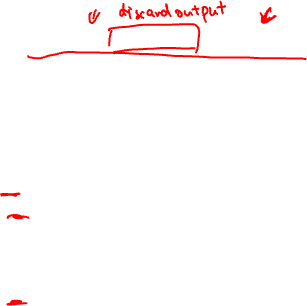 discard output